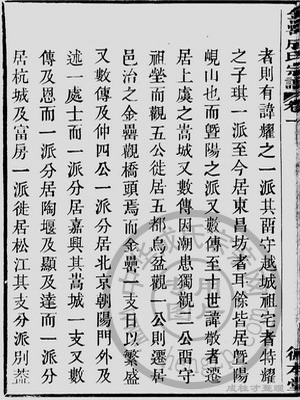 者則有諱耀之一派其兩守越城祖宅者特耀
之子琪一派至今居東昌坊者耳餘皆居暨陽
峴山也而暨陽之派又數傳至十世諱敬者遷
居上虞之嵩城又數傳因潮患獨觀二公兩守
祖塋而觀五公徙居五都烏盆觀一公則遷居
邑治之金罍觀橋頭焉而金罍一支日以繁盛
又數傳及仲四公一派分居北京朝陽門外及
述一處士而一派分居嘉興其嵩城一支又數
傳及恩而一派分居陶堰及顯及達而一派分
居杭城及富房一派徙居松江其支分派別葢
卷一
成桂才整理